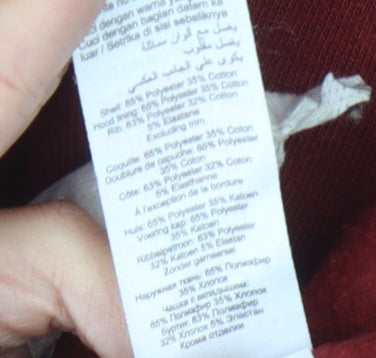 dengan warna
Cuci dengan bagian dalam ke
luar / Setrika di sisi sebaliknya
يغسل مع ألوان مماثلة
يغسل مقلوب
يكوى على الجانب العكسي
Shell: 65% Polyester 35% Cotton
Hood lining: 65% Polyester 35% Cotton
Rib: 63% Polyester 32% Cotton
5% Elastane
Excluding trim
Coquille: 65% Polyester 35% Coton
Doublure de capuche: 65% Polyester
35% Coton
Côte: 63% Polyester 32% Coton
5% Elasthanne
A l'exception de la bordure
Huls: 65% Polyester 35% Katoen
Voering kap: 65% Polyester
35% Katoen
Ribbelpatroon: 63% Polyester
32% Katoen 5% Elastan
Zonder garneersel
Наружная ткань: 65% Полиэфир
35% Хлопок
Чашка с вкладышем:
65% Полиэфир 35% Хлопок
Буртик: 63% Полиэфир
32% Хлопок 5% Эластан
Кроме отделки